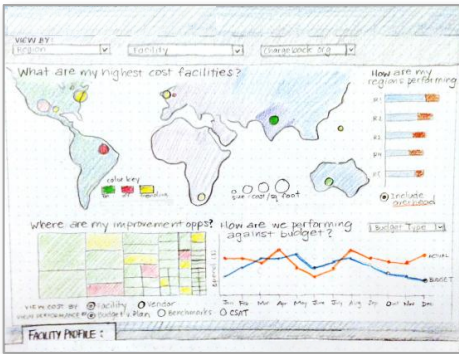 VIEW BY:
Region
Facility
Chargeback Org
What are my highest cost facilities?
How are my
regions performing
R1
R2
R3
R4
R5
color key
size = cost/sq foot
Include
overhead
Where are my improvement opps?
How are we performing
against budget?
Budget Type
ACTUAL
BUDGET
Jan Feb Mar Apr May June July Aug Sep Oct Nov Dec
VIEW COST BY Facility Vendor
VIEW PERFORMANCE BY Budget & Plan Benchmarks CSAT
FACILITY PROFILE: